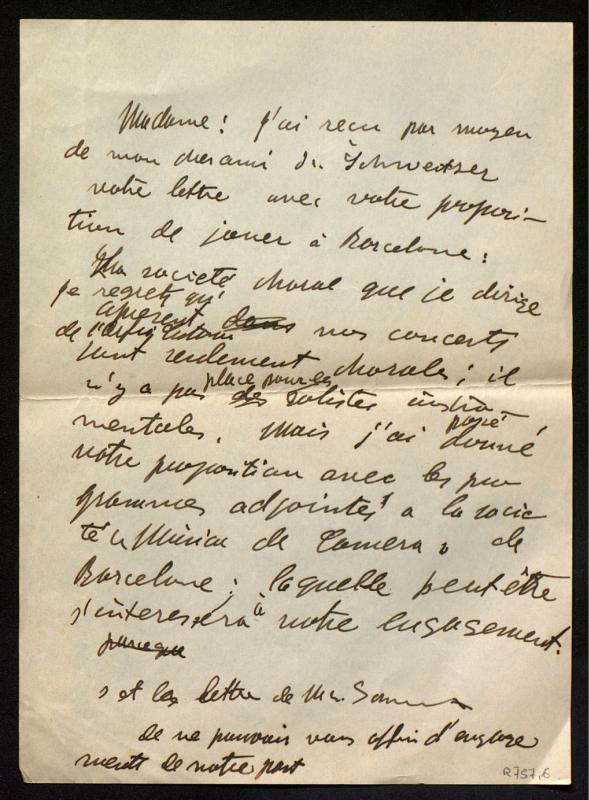 Madame: j'ai reçu par moyen
de mon cher ami Dr. Schweitser
votre lettre avec votre proposi-
tion de jouer à Barcelone:
La société choral que je dirige
je regrets qu'
apresent dans nos concerts
de l'
sont seulement chorales; il
n'y a pas place pour les des solistes instru-
mentales. Mais j'ai donné passé
votre proposition avec les pro
grammes adjointes a la socie
té "Música de Camera" de
Barcelone; laquelle peut être
s'interessera à votre engagement.
parceque
et la lettre de Mr.
de ne pouvoir vous offrir d'engage
ments de notre part
R 757,6